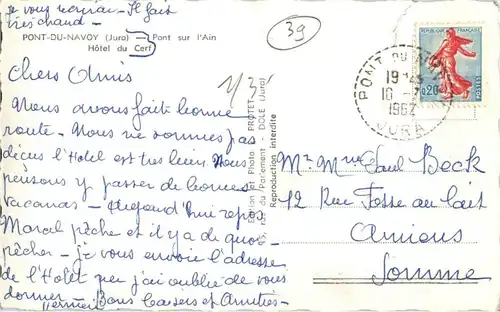 je vous verrai - Il fait
très chaud -
PONT-DU-NAVOY (Jura) - Pont sur l'Ain
Hôtel du Cerf
39
Chers Amis
Nous avons fait bonne
route - Nous ne sommes pas
déçus l'Hotel est très bien. Nous
pensons y passer de bonnes
vacances - Aujourd'hui repos
Marcel pêche et il y a de quoi
pêcher - je vous envoie l'adresse
de l'Hotel que j'ai oublié de vous
donner - Bons baisers et Amitiés -
Édition et Photo PROTET
du Parlement - DOLE (Jura)
Reproduction interdite
REPUBLIQUE FRANÇAISE
0,20
POSTES
PONT DU NAVOY
19 H 45
16 - 7
1962
JURA
Mr Mme Paul Beck
12 Rue Fosse au lait
Amiens
Somme